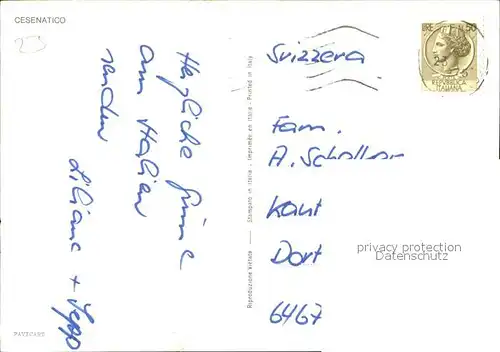 CESENATICO
Herzliche Grüsse
aus Italien
senden
Liliane + Seppo
PAVICARD
Riproduzione vietata — Stampato in Italia - Imprimée en Italie - Printed in Italy
LIRE 50
REPVBBLICA
ITALIANA
Svizzera
Fam.
A.
Dort
6467
privacy protection
Datenschutz